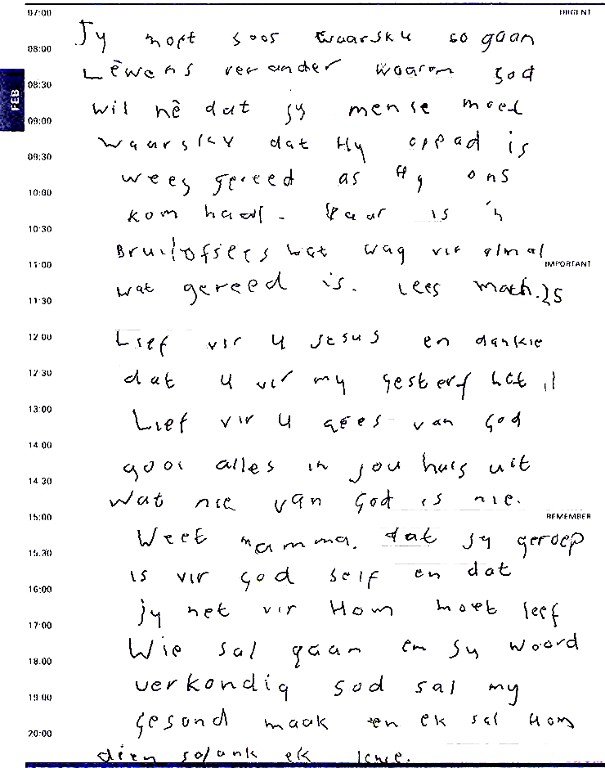 07:00 URGENT
Jy moet soos waarsku so gaan
08:00
Lêwens verander waarom God
08:30
FEB
wil hê dat jy mense moet
09:00
waarsku dat Hy oppad is
09:30
wees gereed as Hy ons
10:00
kom haal. Daar is 'n
10:30
Bruilofsfees wat wag vir almal
11:00 IMPORTANT
wat gereed is. Lees Math. 25
11:30
12:00
Lief vir U Jesus en dankie
12:30
dat U vir my gesterf het
13:00
Lief vir U gees van God
14:00
gooi alles in jou huis uit
14:30
wat nie van God is nie.
15:00 REMEMBER
Weet mamma. dat jy geroep
15:30
is vir God self en dat
16:00
jy net vir Hom moet leef
17:00
Wie sal gaan en sy woord
18:00
verkondig God sal my
19:00
gesond maak en ek sal Hom
20:00
dien solank ek lewe.